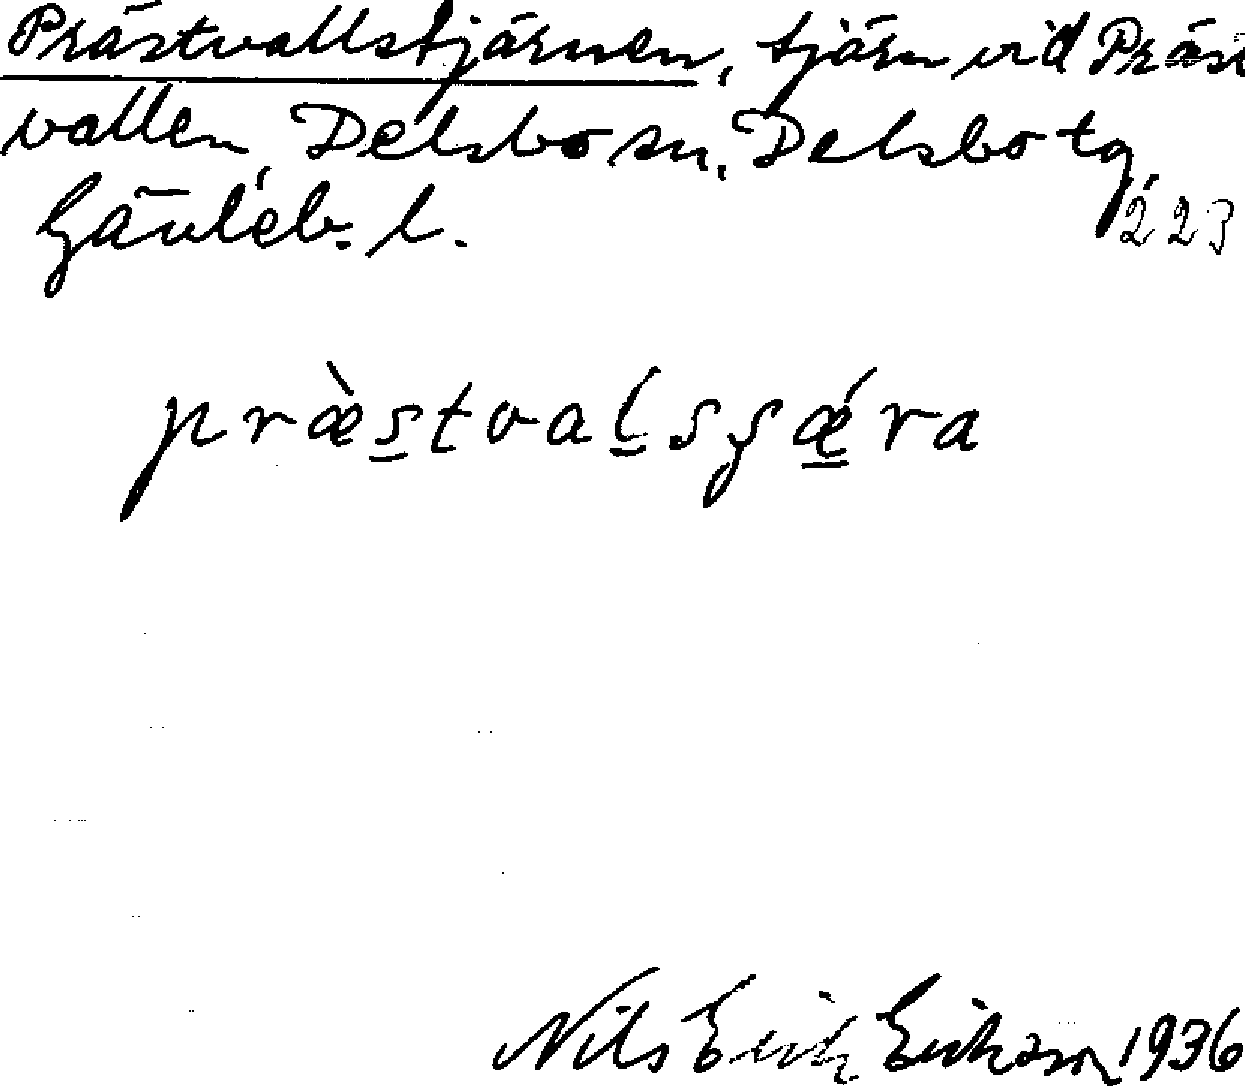 Prästvallstjärnen, tjärn vid Präst
vallen, Delsbo sn, Delsbo tg,
Gävleb. l. 223
præ̀s̲tval̲sʂǽ̲ra
Nils Erik Eriksson 1936